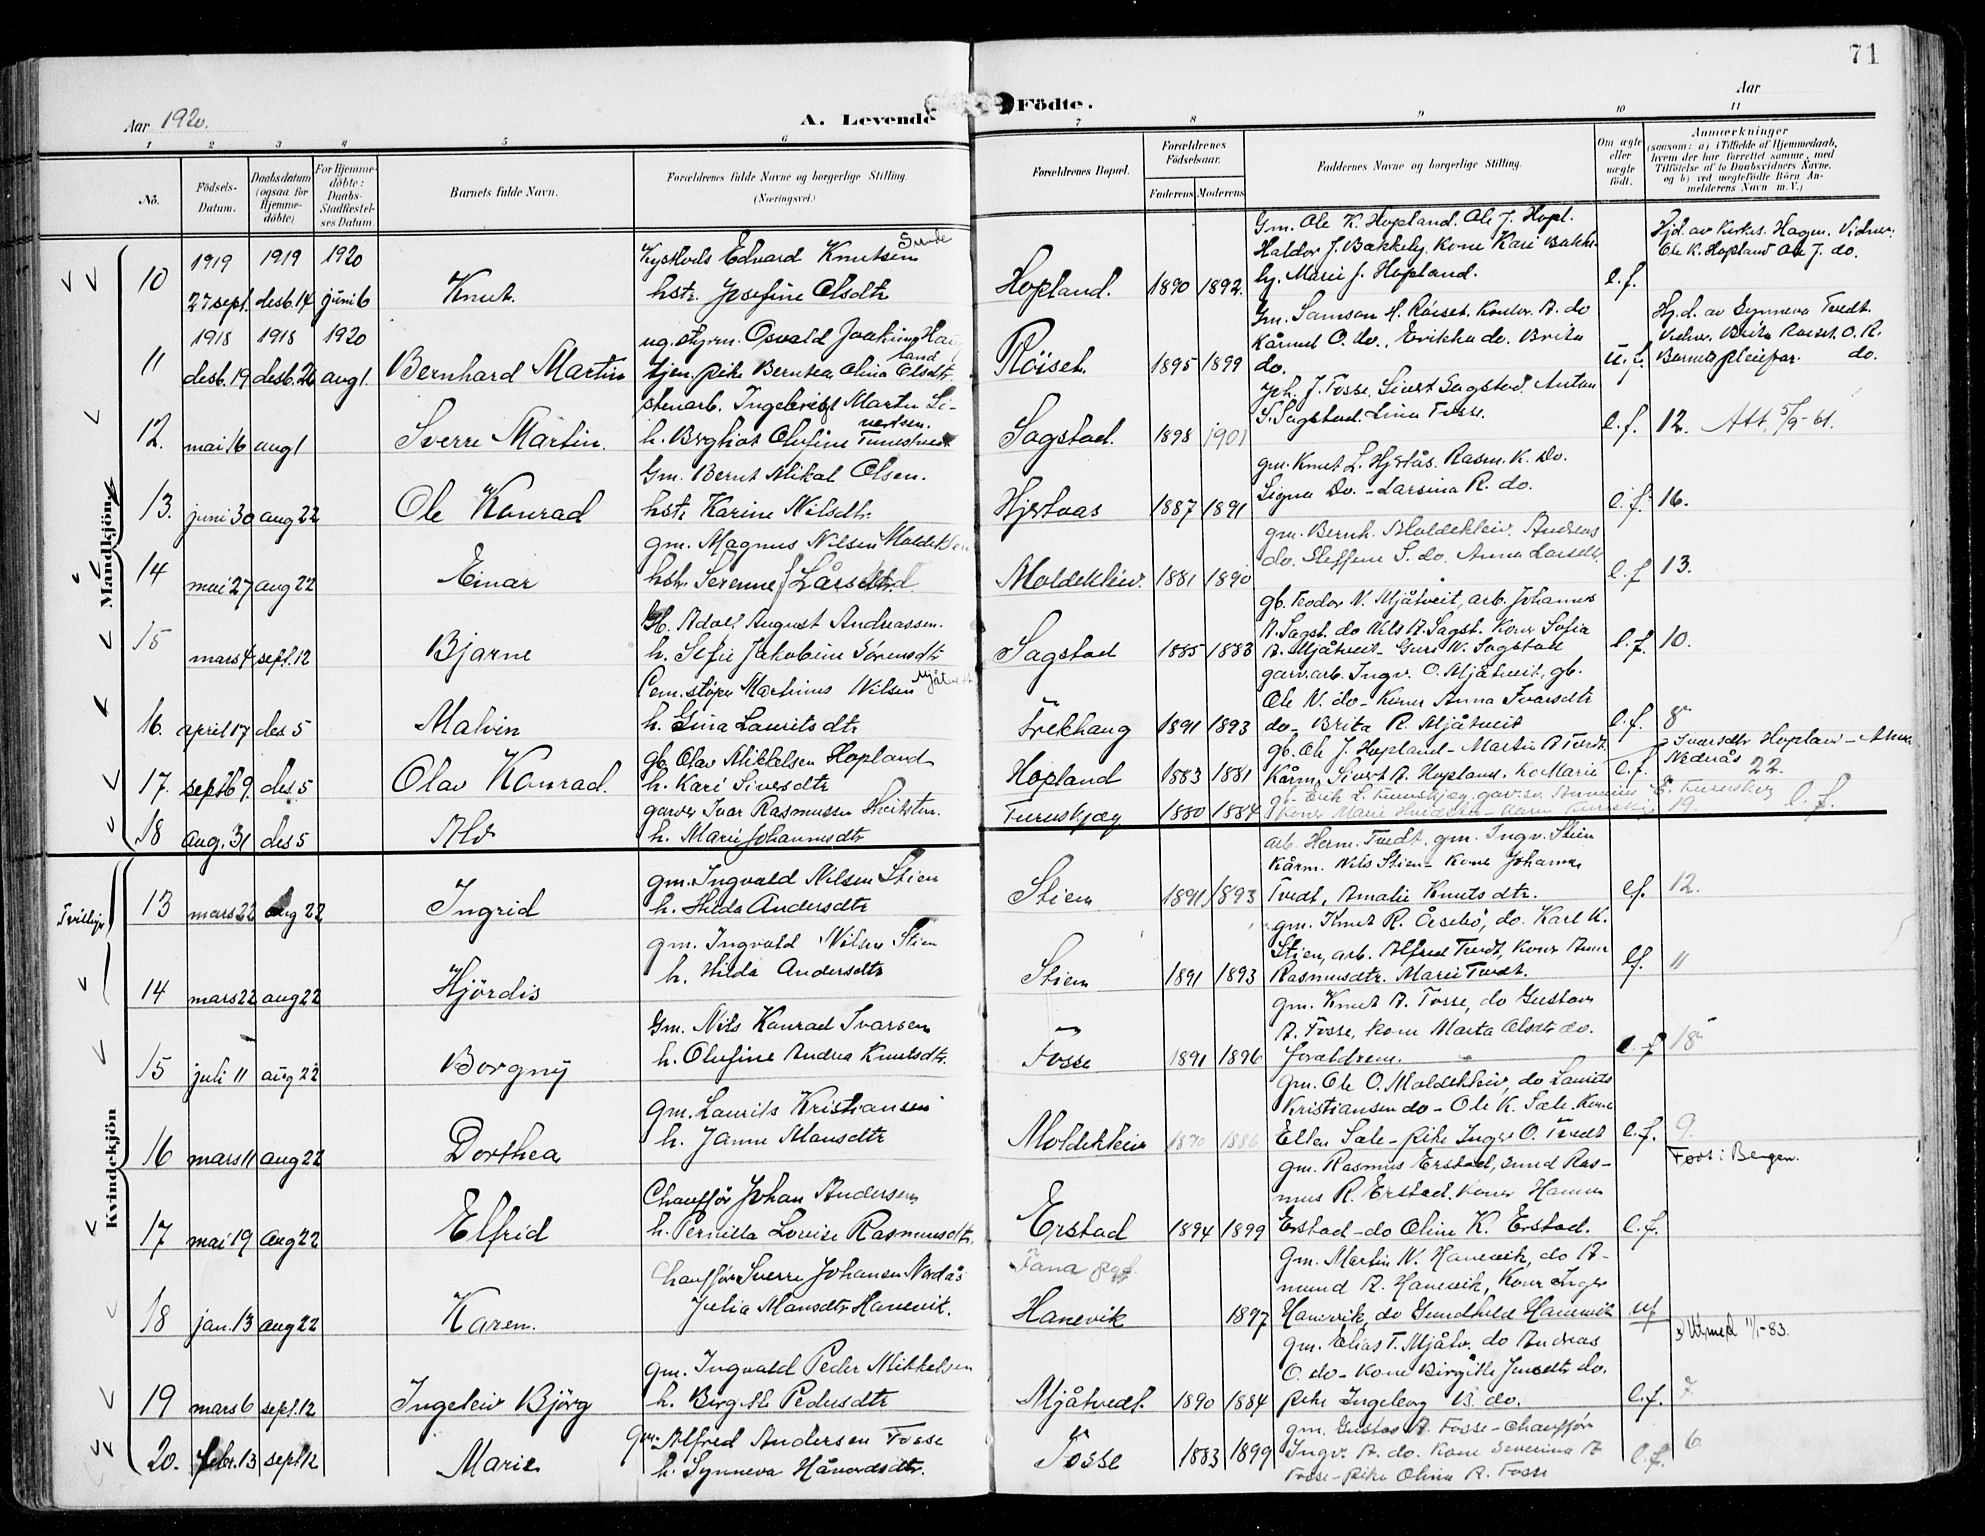 71
Aar 1920.
A. Levende Födte.
Aar
1 2 3 4 5 6 7 8 9 10 11
No.
Födsels-Datum.
Daabsdatum (ogsaa for Hjemme-döbte)
For Hjemme-döbte: Daabs-Stadfæstel-ses Datum
Barnets fulde Navn.
Forældrenes fulde Navne og borgerlige Stilling. (Næringsvei.)
Forældrenes Bopæl.
Forældrenes Födselsaar.
Faderens Moderens
Faddernes Navne og borgerlige Stilling.
Om ægte eller uægte födt.
Anmærkninger
(saasom: a) i Tilfælde af Hjemmedaab, hvem der har forrettet samme, med Tilföielse af to Daabsvidners Navne. og b) ved uægtefödte Börn Anmelderens Navn m. V.)
Mandkjön
10 1919 27 sept. 1919 desb. 14 1920 juni 6 Knut.
Edvard Knutsen Sunde
hstr. Josefine Olsdtr
Hopland. 1890 1892.
Gm. Ole K. Hopland. Ole J. Hopl.
Haldor J. Bakkely, Kone Kari Bakke-
ly. Marie J. Hopland.
e.f.
Hjd. av Kirkes. Hagen. Vidner.
Ole K. Hopland Ole J. do.
11 1918 desb. 19 1918 desb. 26 1920 aug 1. Bernhard Martin
ug. styrm. Osvald Joakim Haugland
tjen. pike Berntea Olina Olsdtr
Röiset. 1895 1899
Gm. Samson H. Röiset. do
Kårmt O. do. Erikka do. Brita
do.
u.f.
Hj.d. av Synneva Tvedt.
Vidner. Brita Roiset. O. R.
do.
12. mai 16 aug 1 Sverre Martin.
Martin Si-
vertsen.
h. Olufine
Sagstad. 1898 1901
Joh. J. Fosse, Sivert Sagstad. Anton
S. Sagstad. Lina Fosse.
e.f. 12. Att. 5/9-61.
13. juni 30 aug 22 Ole Konrad
Gm. Bernt Mikal Olsen.
hstr Karine Nilsdtr.
Hjertaas 1887 1891
gm. Knut L. Hjertås. Rasm. K. Do.
Signa Do. - Larsina R. do.
e.f. 16.
14 mai 27 aug 22 Einar
gm. Magnus Nilsen Moldeklev
hstr. Serenne Larsdtr.
Moldekleiv. 1881 1890
gm. Bernh. Moldekleiv. Andreas
do. Steffine S. do. Anna Larsdtr.
e.f 13.
15 mars 4 sept. 12 Bjarne
Gb. Adolf August Andreassen.
h. Sofie Jakobine Sörensdtr
Sagstad 1885 1883
gb. Teodor N. Mjåtveit, arb. Johannes
A. Sagst. do Nils A. Sagst. Kone Sofia
A. Mjåtveit. Guro N. Sagstad
e.f. 10.
16. april 17 des 5 Malvin
Cem. støper Martinus Nilsen Mjåtveit
h. Gina Lauritsdtr
Frekhaug 1891 1893
garv.arb. Ingv. O. Mjåtveit, gb.
Ole N. do - Kone Anna Ivarsdtr
do - Brita R. Mjåtveit
e.f. 8
17. sept 9. des 5 Olav Konrad.
gb. Olav Mikkelsen Hopland
h. Kari Siversdtr
Hopland 1883 1881
gb. Ole J. Hopland - Martin A Tvedt
Kårm. Sivert A. Hopland. Ko Marie
e.f.
Ivarsdtr Hopland - Anna
Nedraas 22.
18 aug. 31 des 5 Alv
garver Ivar Rasmussen
h. Marie Johannesdtr
Fureskjæg 1880 1884
gb. Erik L. Fureskjæg
19. e.f.
Kvindekjön
Tvillinger
13 mars 22 aug 22 Ingrid
gm. Ingvald Nilsen Stien
h. Hilda Andersdtr
Stien 1891 1893
arb. Herm. Tvedt, gm. Ingv. Stien
Kårm. Nils Stien - Kone Johanna
Tvedt, Amalie Knutsdtr.
ef. 12.
14 mars 22 aug 22 Hjördis
gm. Ingvald Nilsen Stien
h. Hilda Andersdtr
Stien 1891 1893
gm. Knut R. do. Karl K.
Stien, arb. Alfred Tvedt, Kone Anna
Rasmusdtr. Marie Tvedt.
ef. 11
15 juli 11 aug 22 Borgny
Gm. Nils Konrad Ivarsen
h. Olufine Andrea Knutsdtr.
Fosse 1891 1896
gm. Knut A. Fosse, do Gustav
A. Fosse, kone Marta Olsdtr do.
forældrene.
e.f 18
16 mars 11 aug 22 Dorthea
gm. Laurits Kristiansen
h. Janne Monsdtr
Moldekleiv 1870 1886
gm. Ole O. Moldekleiv, do Laurits
Kristiansen do - Ole K. Sæle. Kone
Ellen Sæle - pike Inger O. Tvedt
e.f. 9.
17 mai 19 aug 22 Elfrid
Chauffør Johan Andersen
h. Pernilla Lovise Rasmusdtr.
Erstad 1894 1899
gm. Rasmus Erstad, Ras-
mus R. Erstad. Kone Hanna
Erstad - do Oline K. Erstad.
e.f.
i Bergen.
18 jan. 13 aug 22 Karen.
Chauffør Sverre Johansen Nordås
Julia Monsdtr Hanevik.
Fana pgj.
Hanevik 1897
Gm. Martin N. Hanevik, do A-
mund A. Hanevik, Kone Inger
Hanevik, do Gundhild Hanevik
uf
Utmed 11/1-83.
19 mars 6 sept. 12 Ingeleiv Björg
gm. Ingvald Peder Mikkelsen
h. Birgitte Pedersdtr
Mjåtvedt. 1890 1884
gm. Elias T. Mjåtv. do Andreas
O. do - Kone Birgitte Jensdtr do.
Pike Ingeborg do.
e.f. 7
20. febr. 13 sept 12 Marie
gm. Alfred Andersen Fosse
h. Synneva Håvardsdtr.
Fosse 1883 1899
gm. Gustav A. Fosse - Chauffør
Ingv. A. do. Kone Severina A
Fosse - Pike Olina A. Fosse
e.f. 6